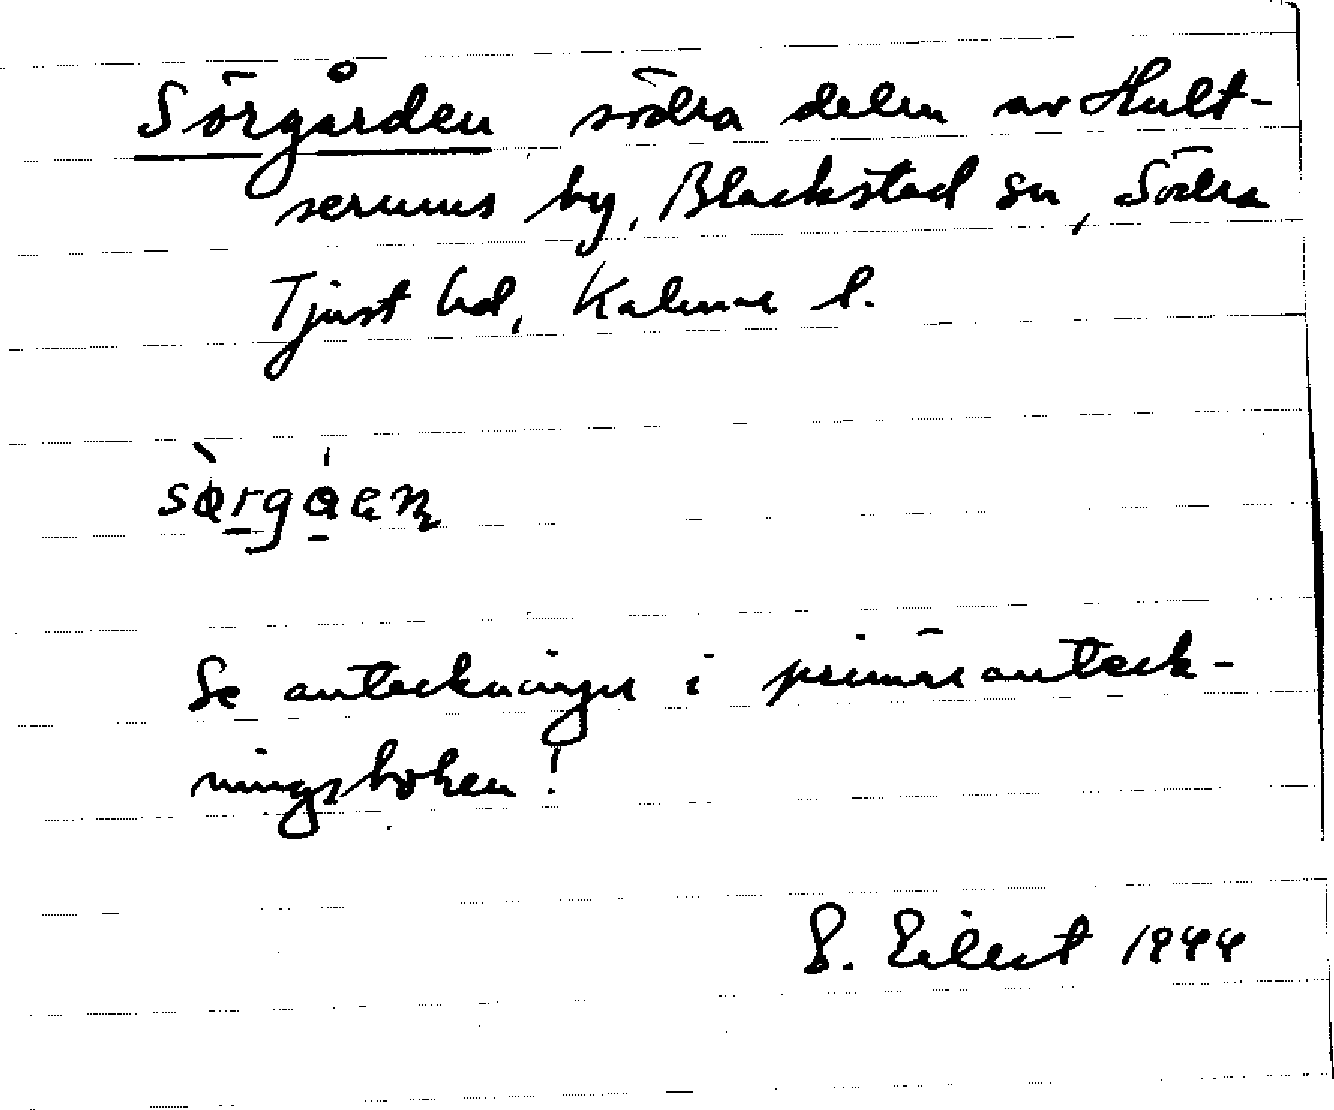 Sörgården södra delen av Hult-
serums by, Blackstad sn, Södra
Tjust hd, Kalmar l.
Se anteckningar i primäranteck-
ningsboken!
Eilert 1944